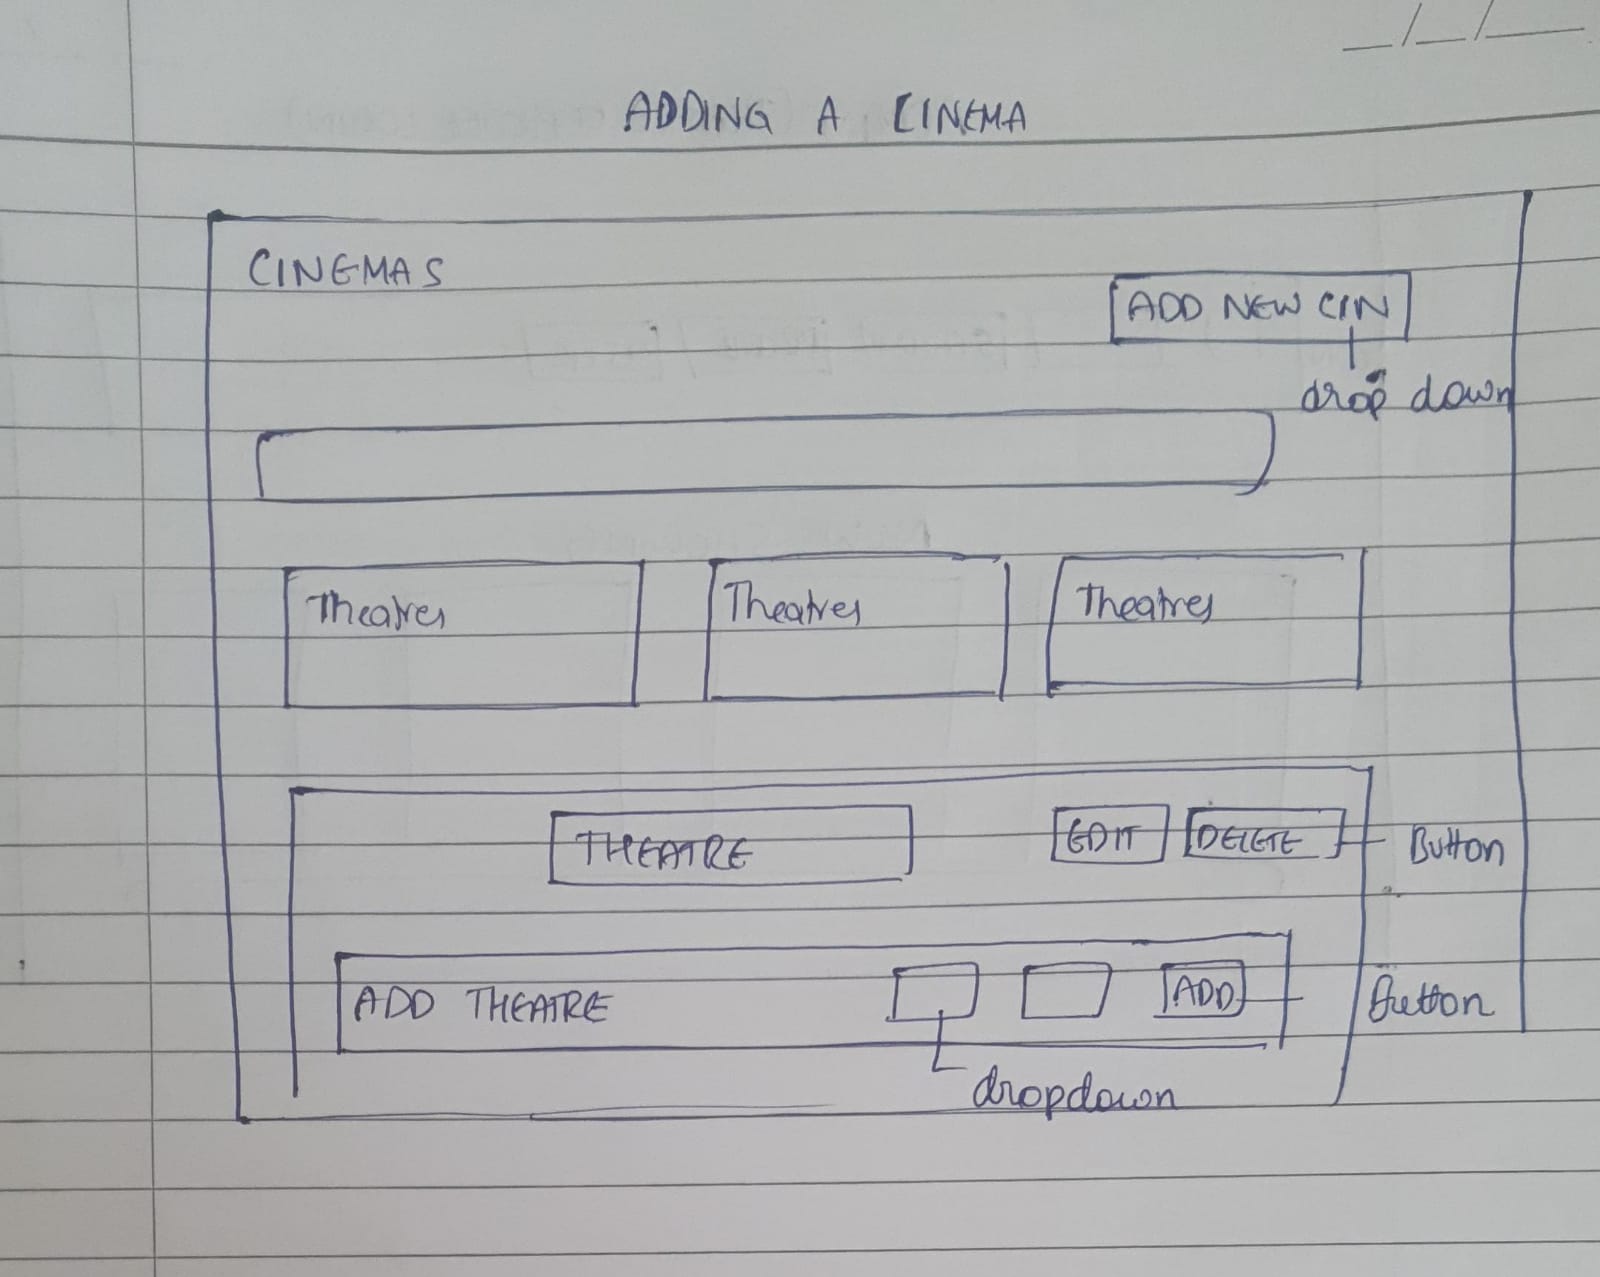 __/__/____
ADDING A CINEMA
CINEMAS
ADD NEW CIN
drop down
Theatres Theatres Theatres
THEATRE EDIT DELETE Button
ADD THEATRE ADD Button
dropdown